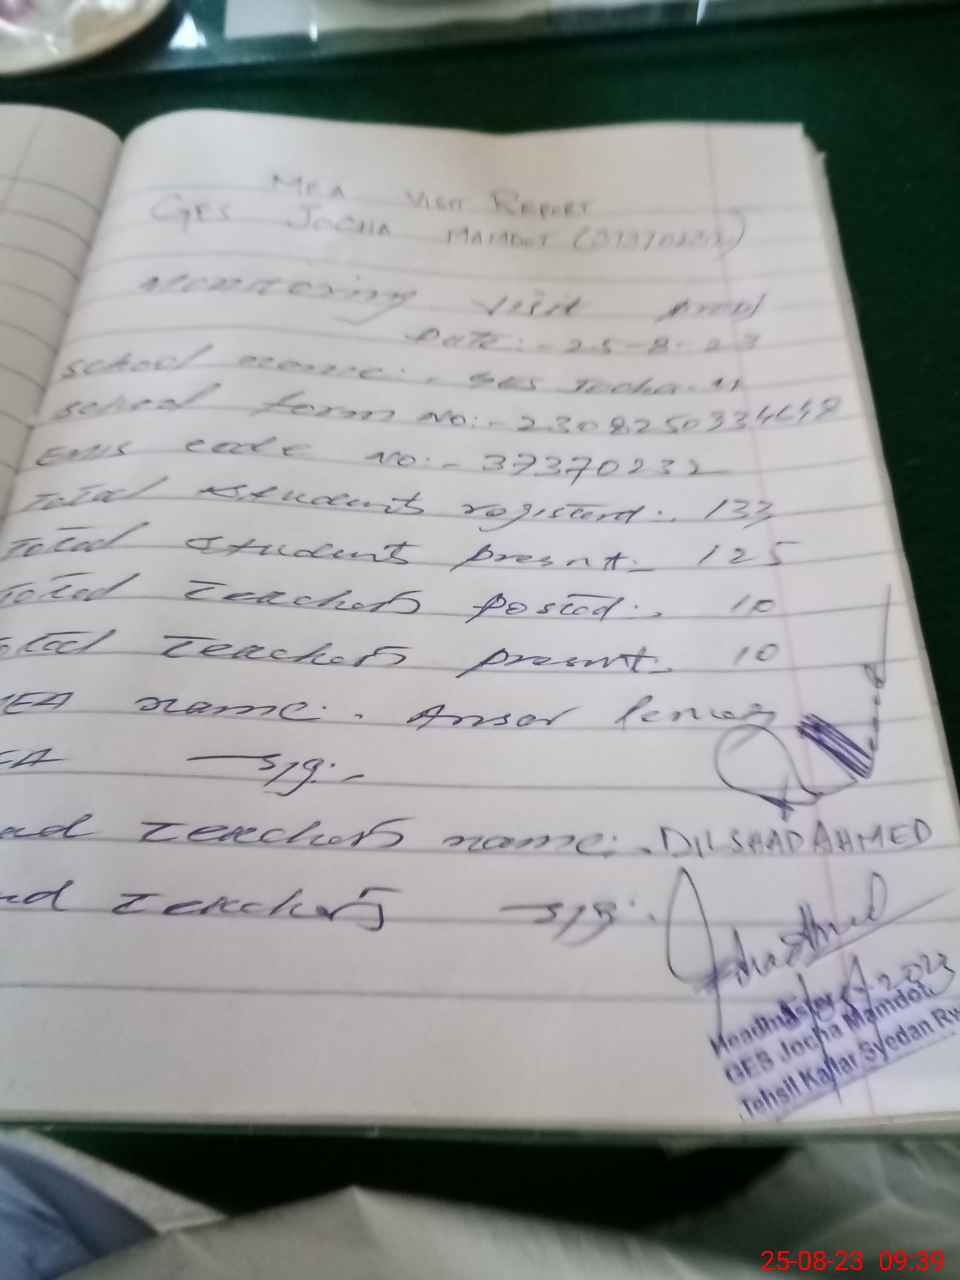 MEA VISIT REPORT
GES JOCHA MAMDOT (37370232)
Monitoring visit
Date:- 25-8-23
school name:. GES Jocha. M
school form No:- 2308250334648
EMIS code No:- 37370232
Total student registerd:. 133
Total student presnt:- 125
Total Teachers posted:. 10
otal Teachers present. 10
MEA name:. Ansar
EA sig:-
ad Teachers name:. DILSHAD AHMED
ad Teachers sig:.
2023
Headmaster
GES Jocha Mamdot
Tehsil Kallar Syedan Rw
25-08-23 09:39